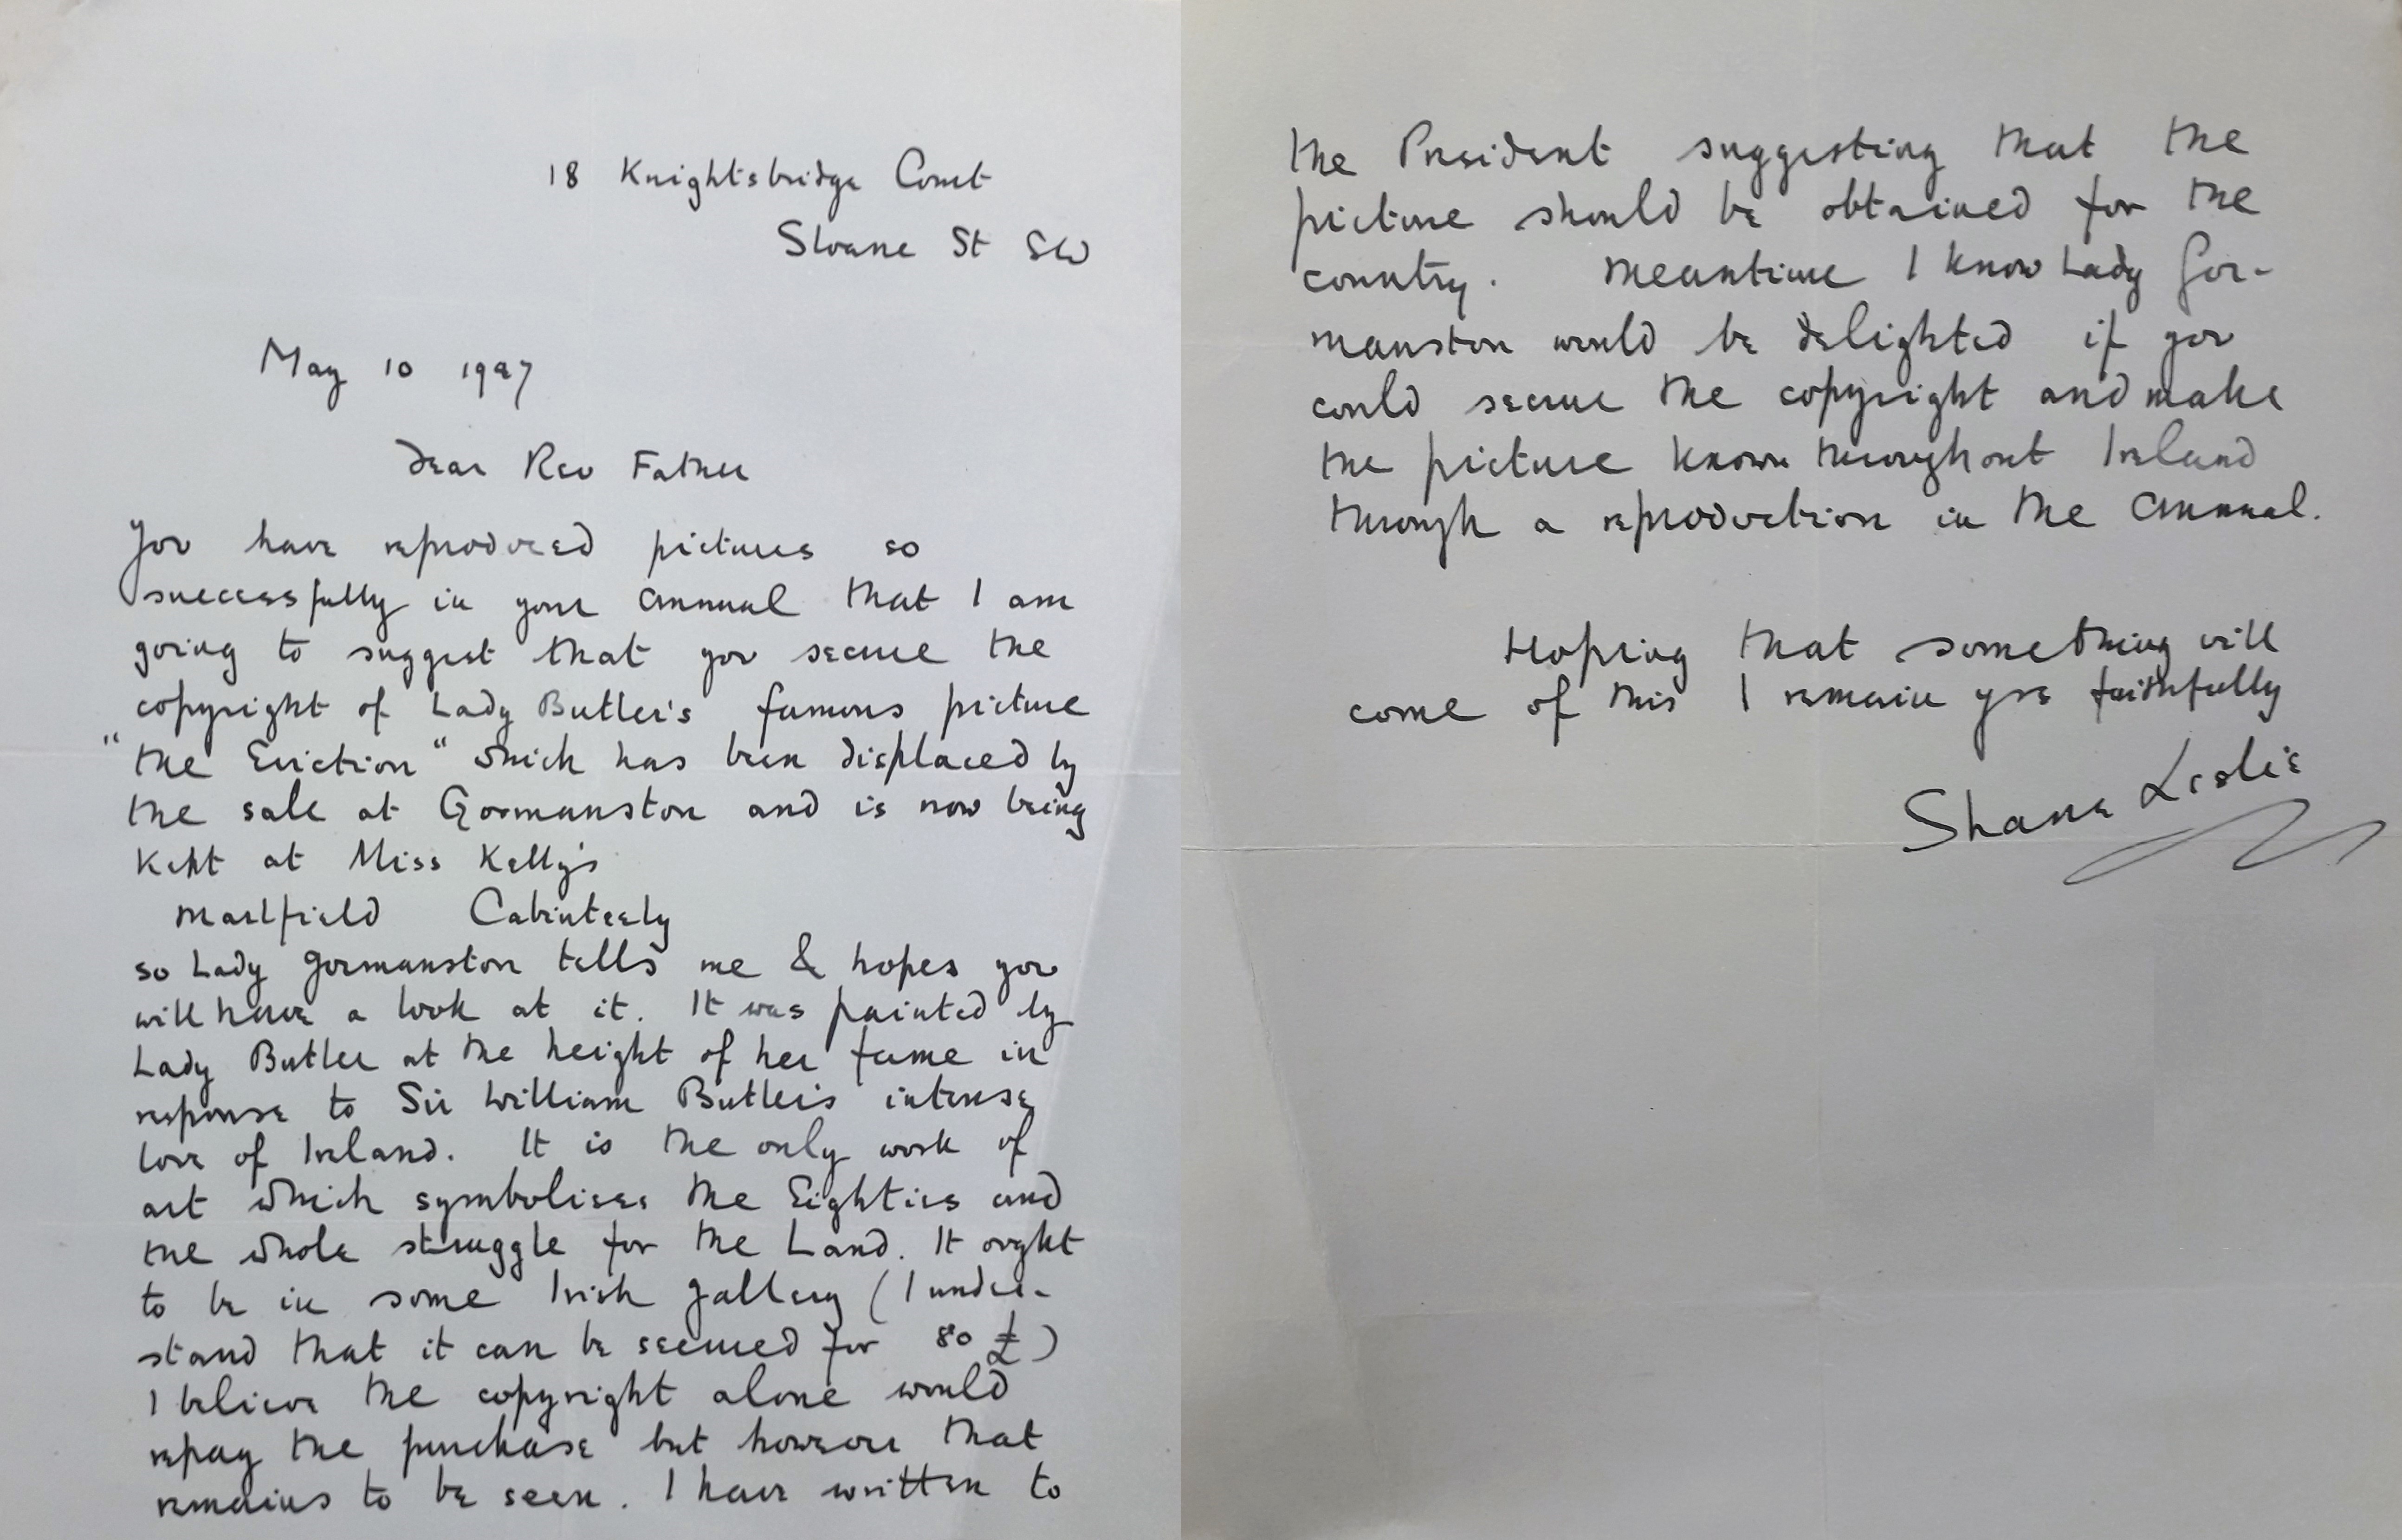 18 Knightsbridge Court
Sloane St SW
May 10 1947
Dear Rev Father
You have reproduced pictures so
successfully in your Annual that I am
going to suggest that you secure the
copyright of Lady Butler's famous picture
"the Eviction" which has been displaced by
the sale at Gormanston and is now being
kept at Miss Kelly's
Marlfield Cabinteely
so Lady Gormanston tells me & hopes you
will have a look at it. It was painted by
Lady Butler at the height of her fame in
response to Sir William Butler's intense
love of Ireland. It is the only work of
art which symbolises the Eighties and
the whole struggle for the Land. It ought
to be in some Irish gallery (I under-
stand that it can be secured for 80 £)
I believe the copyright alone would
repay the purchase but however that
remains to be seen. I have written to
the President suggesting that the
picture should be obtained for the
country. Meantime I know Lady Gor-
manston would be delighted if you
could secure the copyright and make
the picture known throughout Ireland
through a reproduction in the Annual.
Hoping that something will
come of this I remain yrs faithfully
Shane Leslie